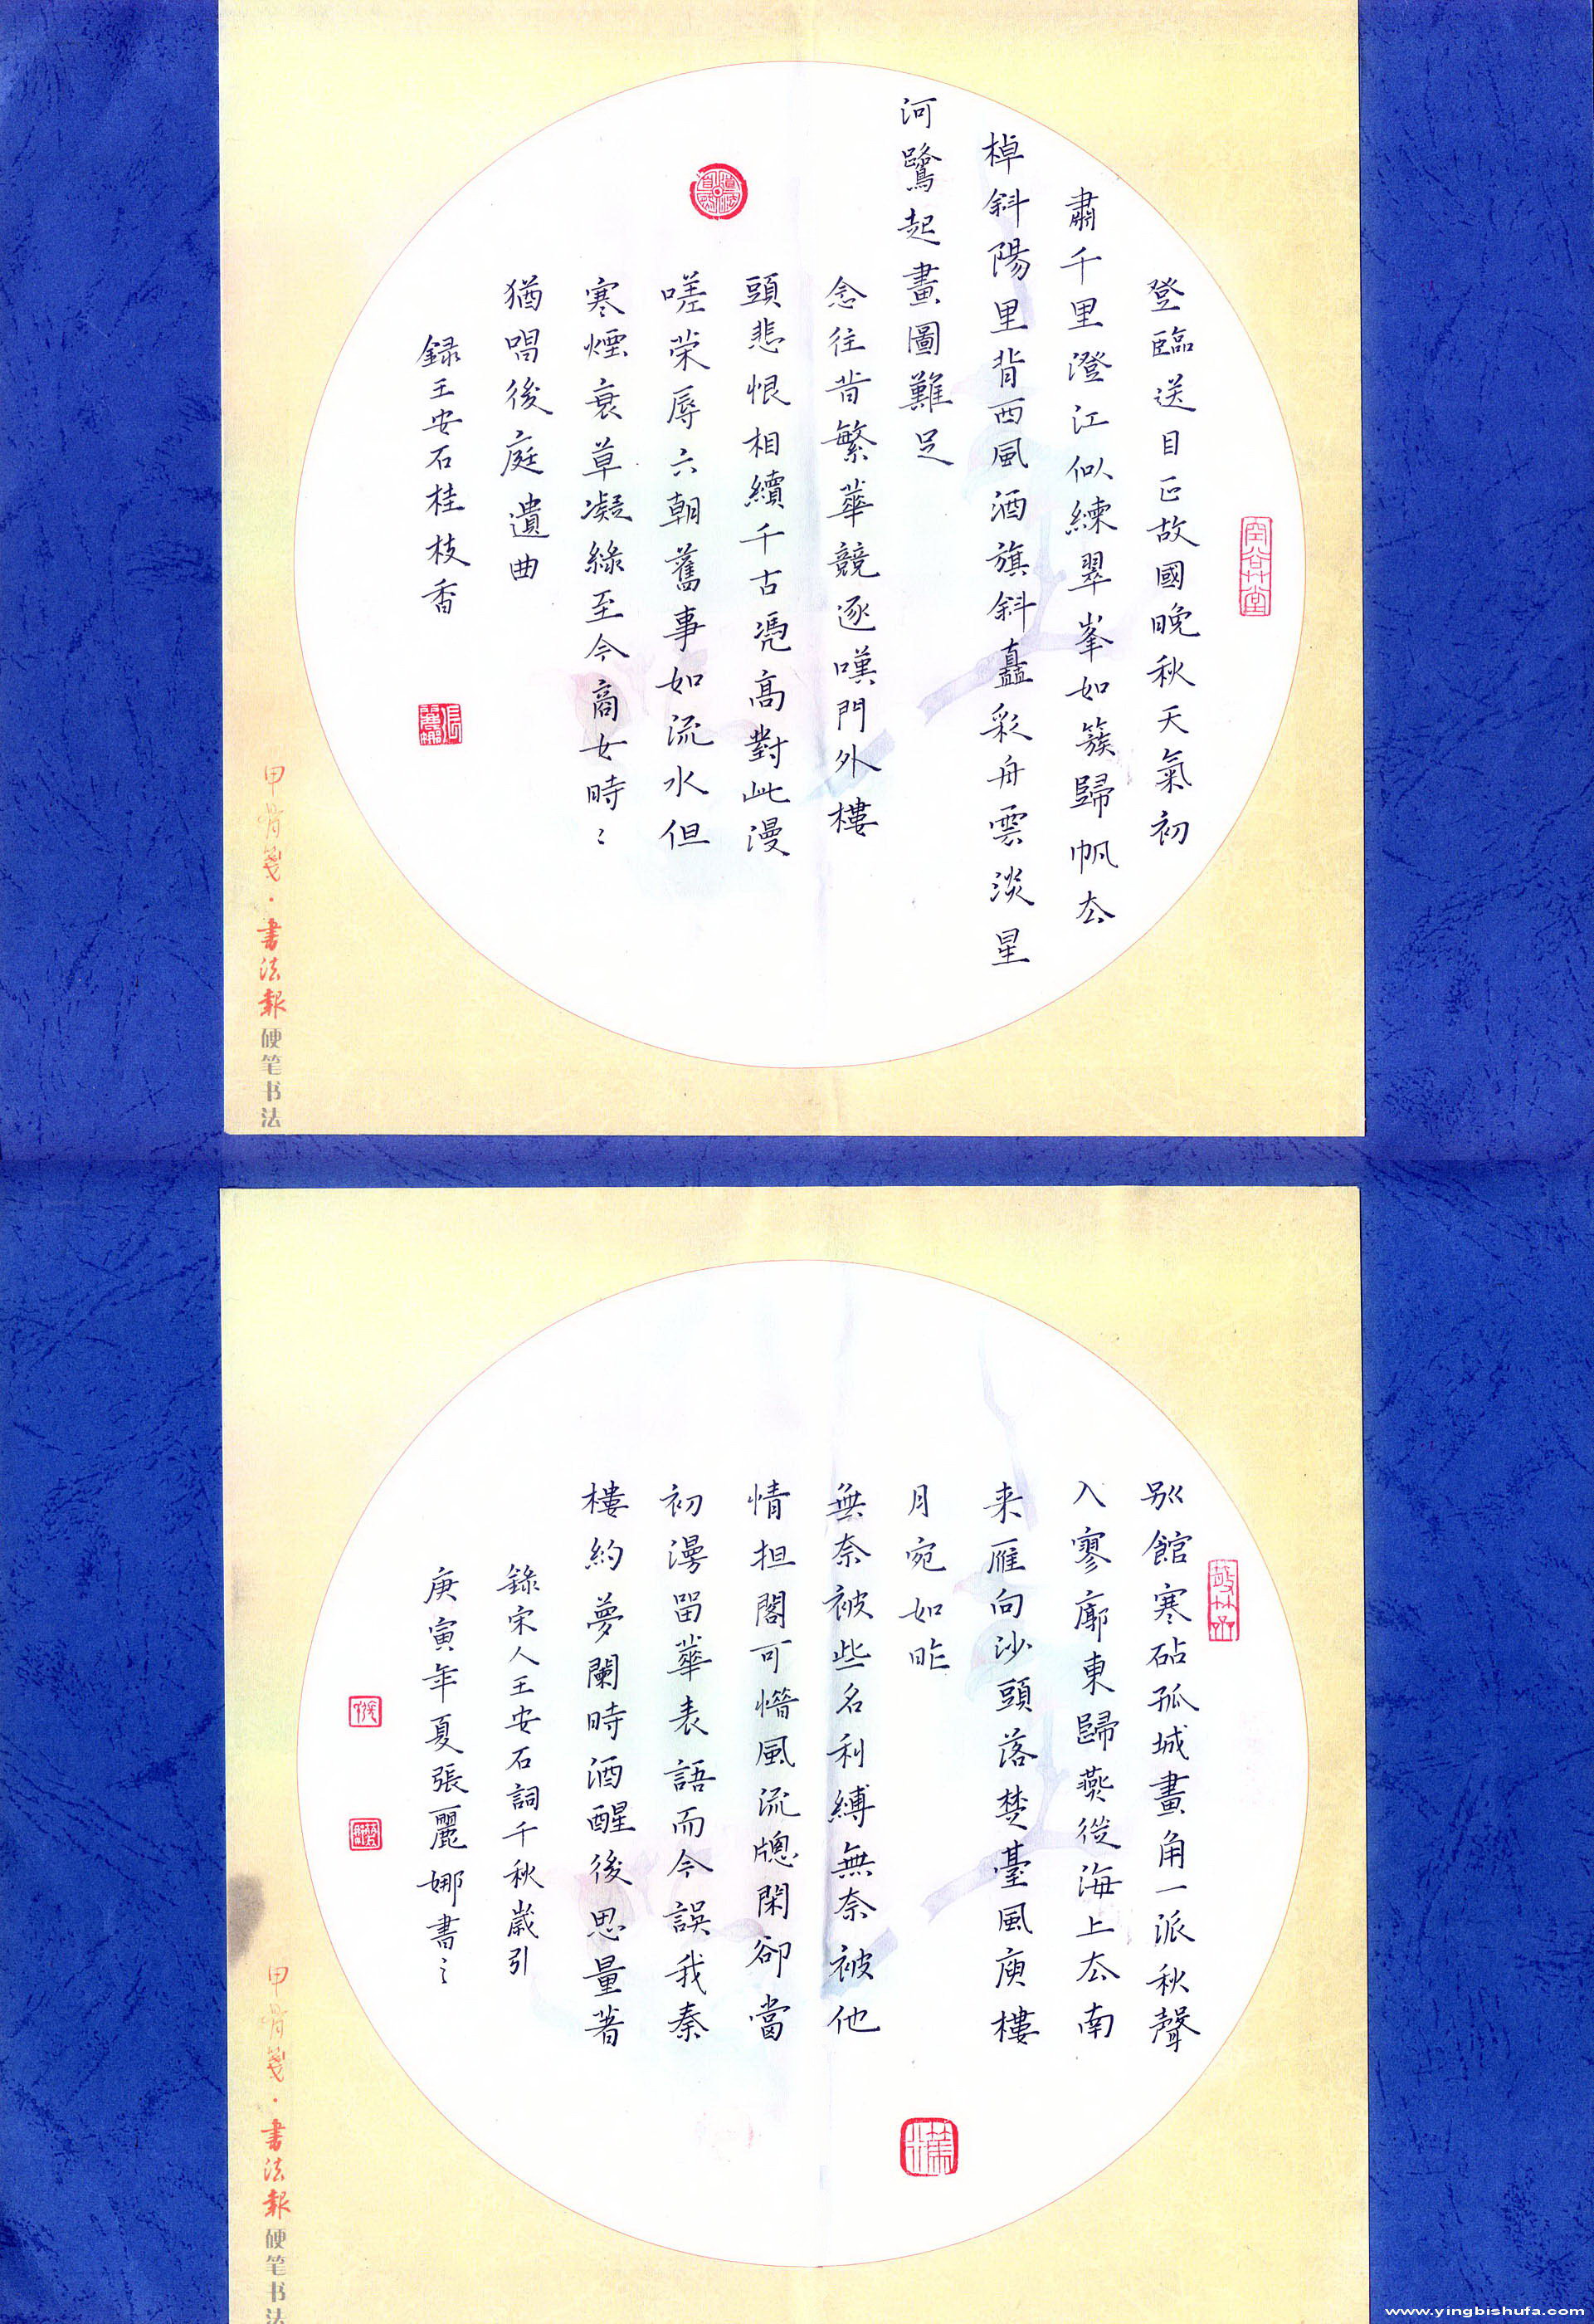 登臨送目正故國晚秋天氣初
肅千里澄江似練翠峯如簇歸帆去
棹斜陽里背西風酒旗斜矗彩舟雲淡星
河鷺起畫圖難足
念往昔繁華競逐嘆門外樓
頭悲恨相續千古憑高對此漫
嗟榮辱六朝舊事如流水但
寒煙衰草凝綠至今商女時〻
猶唱後庭遺曲
録王安石桂枝香
甲骨箋·書法報硬笔书法
別館寒砧孤城畫角一派秋聲
入寥廓東歸燕從海上去南
来雁向沙頭落楚臺風庾樓
月宛如昨
無奈被些名利縛無奈被他
情担閣可惜風流牕閑卻當
初漫留華表語而今誤我秦
樓約夢闌時酒醒後思量著
錄宋人王安石詞千秋歲引
庚寅年夏張麗娜書〻
甲骨箋·書法報硬笔书法
www.yingbishufa.com